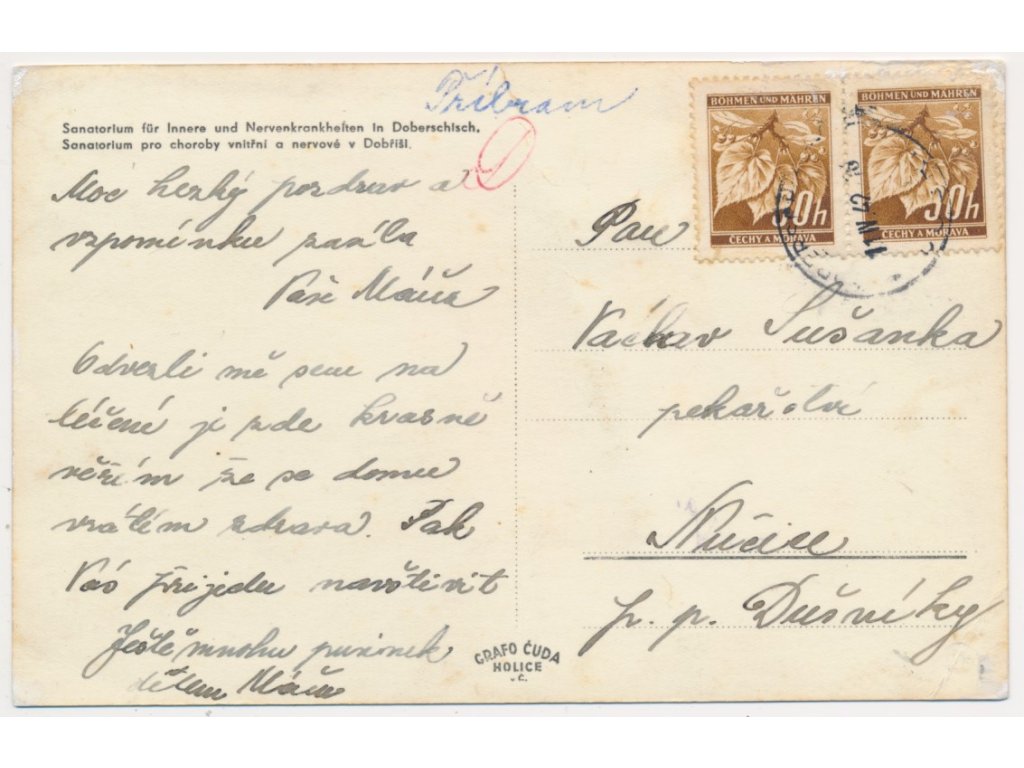 Příbram
Sanatorium für Innere und Nervenkrankheiten in Doberschisch.
Sanatorium pro choroby vnitřní a nervové v Dobříši.
Moc hezký pozdrav a
vzpomínku zasíla
Vaše Máňa
Odvezli mě sem na
léčení je zde krasně
věřím že se domu
vrátím zdrava. Pak
Vás přijedu navštivit
Ještě mnoho pusinek
dětem Máňa
GRAFO ČUDA
HOLICE
v Č.
BÖHMEN UND MÄHREN
30h
ČECHY A MORAVA
BÖHMEN UND MÄHREN
30h
ČECHY A MORAVA
11 IV 42
Pan
Váchav Sušanka
pekařství
Nučice
p. p. Dušníky